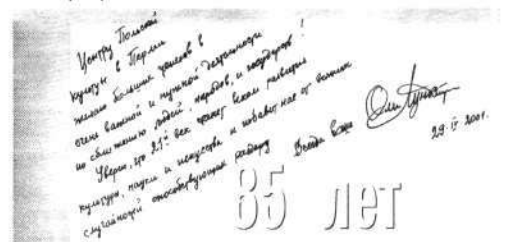 Центру Польской
культуры в Перми
желаю больших успехов в
очень важной и нужной деятельности
по сближению людей, народов, и государств!
Уверен, что 21й век станет веком развития
культуры, науки и искусства и избавит нас от
случайностей способствующих раздору
Всегда Ваш
29. IV 2001.
85 лет